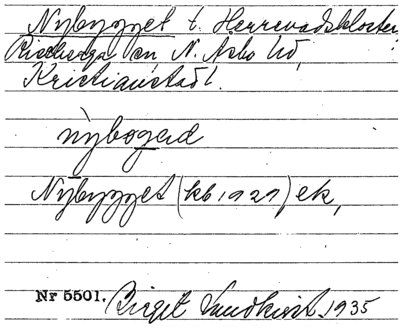 Nybygget t. Herrevadskloster,
Riseberga sn, N. Åsbo hd,
Kristianstad l.
nybogad
Nybygget (kb 1929) ek,
Nr 5501. Birgit Sundkvist 1935